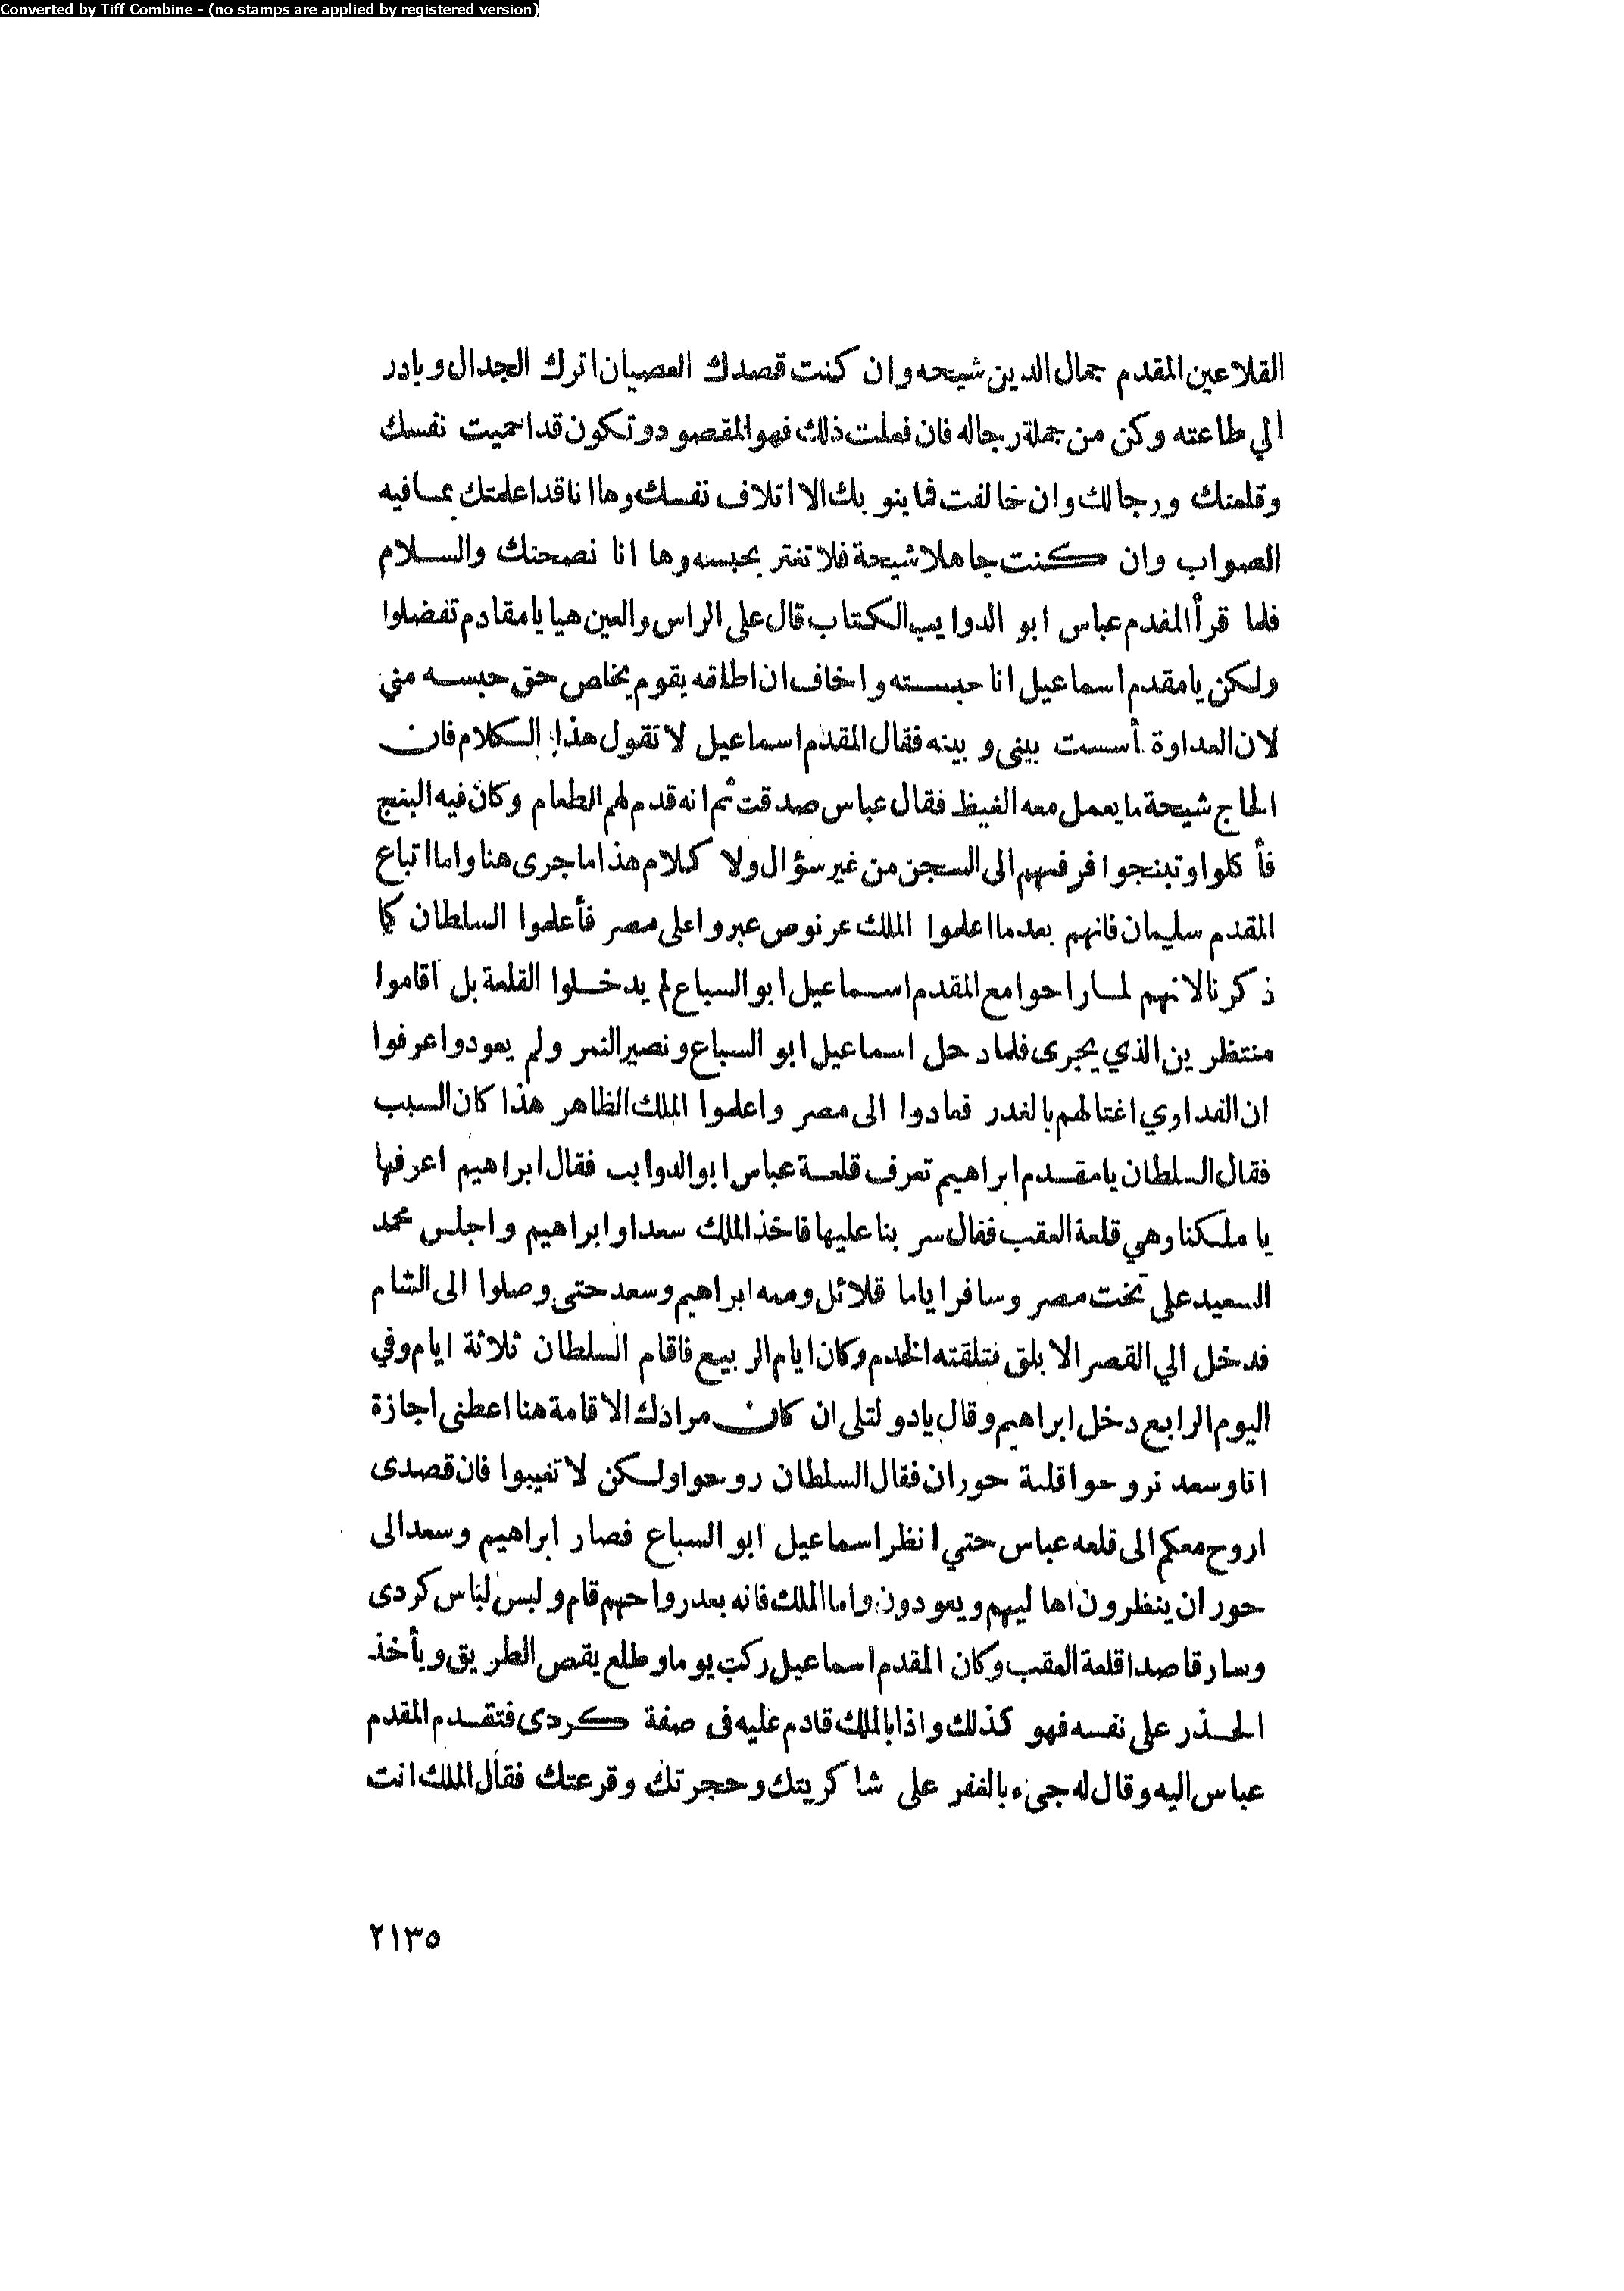 Converted by Tiff Combine - (no stamps are applied by registered version)
القلاعين المقدم جمال الدين شيحه وان كنت قصدك العصيان اترك الجدال وبادر
الي طاعته وكن من جملة رجاله فان فعلت ذلك فهو المقصود وتكون قد احميت نفسك
وقلعتك ورجالك وان خالفت فما ينوبك الا اتلاف نفسك وها انا قد اعلمتك بما فيه
الصواب وان كنت جاهلا شيحة فلا تغتر بحبسه وها انا نصحتك والسلام
فلما قرأ المقدم عباس ابو الدوايب الكتاب قال على الراس والعين هيا يا مقادم تفضلوا
ولكن يا مقدم اسماعيل انا حبسته واخاف ان اطلقه يقوم يخلص حق حبسه مني
لان العداوة أسست بيني وبينه فقال المقدم اسماعيل لا تقول هذا الكلام فان
الحاج شيحة ما يعمل معه الغيظ فقال عباس صدقت ثم انه قدم لهم الطعام وكان فيه البنج
فأكلوا وتبنجوا فرفسهم الى السجن من غير سؤال ولا كلام هذا ما جرى هنا واما اتباع
المقدم سليمان فانهم بعد ما اعلموا الملك عرنوص عبروا على مصر فأعلموا السلطان كما
ذكرنا لانهم لما راحوا مع المقدم اسماعيل ابو السباع لم يدخلوا القلعة بل اقاموا
منتظرين الذي يجرى فلما دحل اسماعيل ابو السباع ونصير النمر ولم يعودوا عرفوا
ان الفداوي اغتالهم بالغدر فعادوا الى مصر واعلموا الملك الظاهر هذا كان السبب
فقال السلطان يا مقدم ابراهيم تعرف قلعة عباس ابو الدوايب فقال ابراهيم اعرفها
يا ملكنا وهي قلعة العقب فقال سر بنا عليها فاخذ الملك سعدا وابراهيم واجلس محمد
السعيد على تخت مصر وسافر اياما قلائل ومعه ابراهيم وسعد حتى وصلوا الى الشام
فدخل الي القصر الابلق فتلقته الخدم وكان ايام الربيع فاقام السلطان ثلاثة ايام وفي
اليوم الرابع دخل ابراهيم وقال يا دولتلى ان كان مرادك الاقامة هنا اعطنى اجازة
انا وسعد نروحوا قلعة حوران فقال السلطان روحوا ولكن لا تغيبوا فان قصدى
اروح معكم الى قلعه عباس حتي انظر اسماعيل ابو السباع فصار ابراهيم وسعد الى
حوران ينظرون اهاليهم ويعودون واما الملك فانه بعد رواحهم قام ولبس لباس كردى
وسار قاصدا قلعة العقب وكان المقدم اسماعيل ركب يوما وطلع يقص الطريق ويأخذ
الحذر على نفسه فهو كذلك واذا بالملك قادم عليه فى صفة كردى فتقدم المقدم
عباس اليه وقال له جىء بالغفر على شاكريتك وحجرتك وقرعتك فقال الملك انت
٢١٣٥